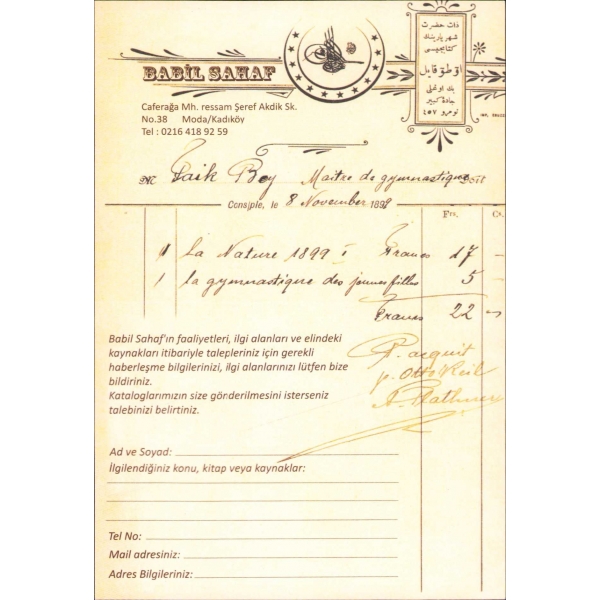 BABİL SAHAF
Caferağa Mh. ressam Şeref Akdik Sk.
No.38 Moda/Kadıköy
Tel : 0216 418 92 59
ذات حضرت
شهریارینك
کتابجیسی
اوطو قایل
بك اوغلی
جادهٔ کبیر
نومرو ٤٥٧
M Faik Bey Maitre de gymnastique Doit
Consple, le 8 November 1899
Fr. C.
1 La Nature 1899 I Francs 17 -
1 la gymnastique des jeunes filles 5 -
Francs 22 -
P. acquit
p. Otto Keil
Babil Sahaf'ın faaliyetleri, ilgi alanları ve elindeki
kaynakları itibariyle talepleriniz için gerekli
haberleşme bilgilerinizi, ilgi alanlarınızı lütfen bize
bildiriniz.
Kataloglarımızın size gönderilmesini isterseniz
talebinizi belirtiniz.
Ad ve Soyad:
İlgilendiğiniz konu, kitap veya kaynaklar:
Tel No:
Mail adresiniz:
Adres Bilgileriniz: